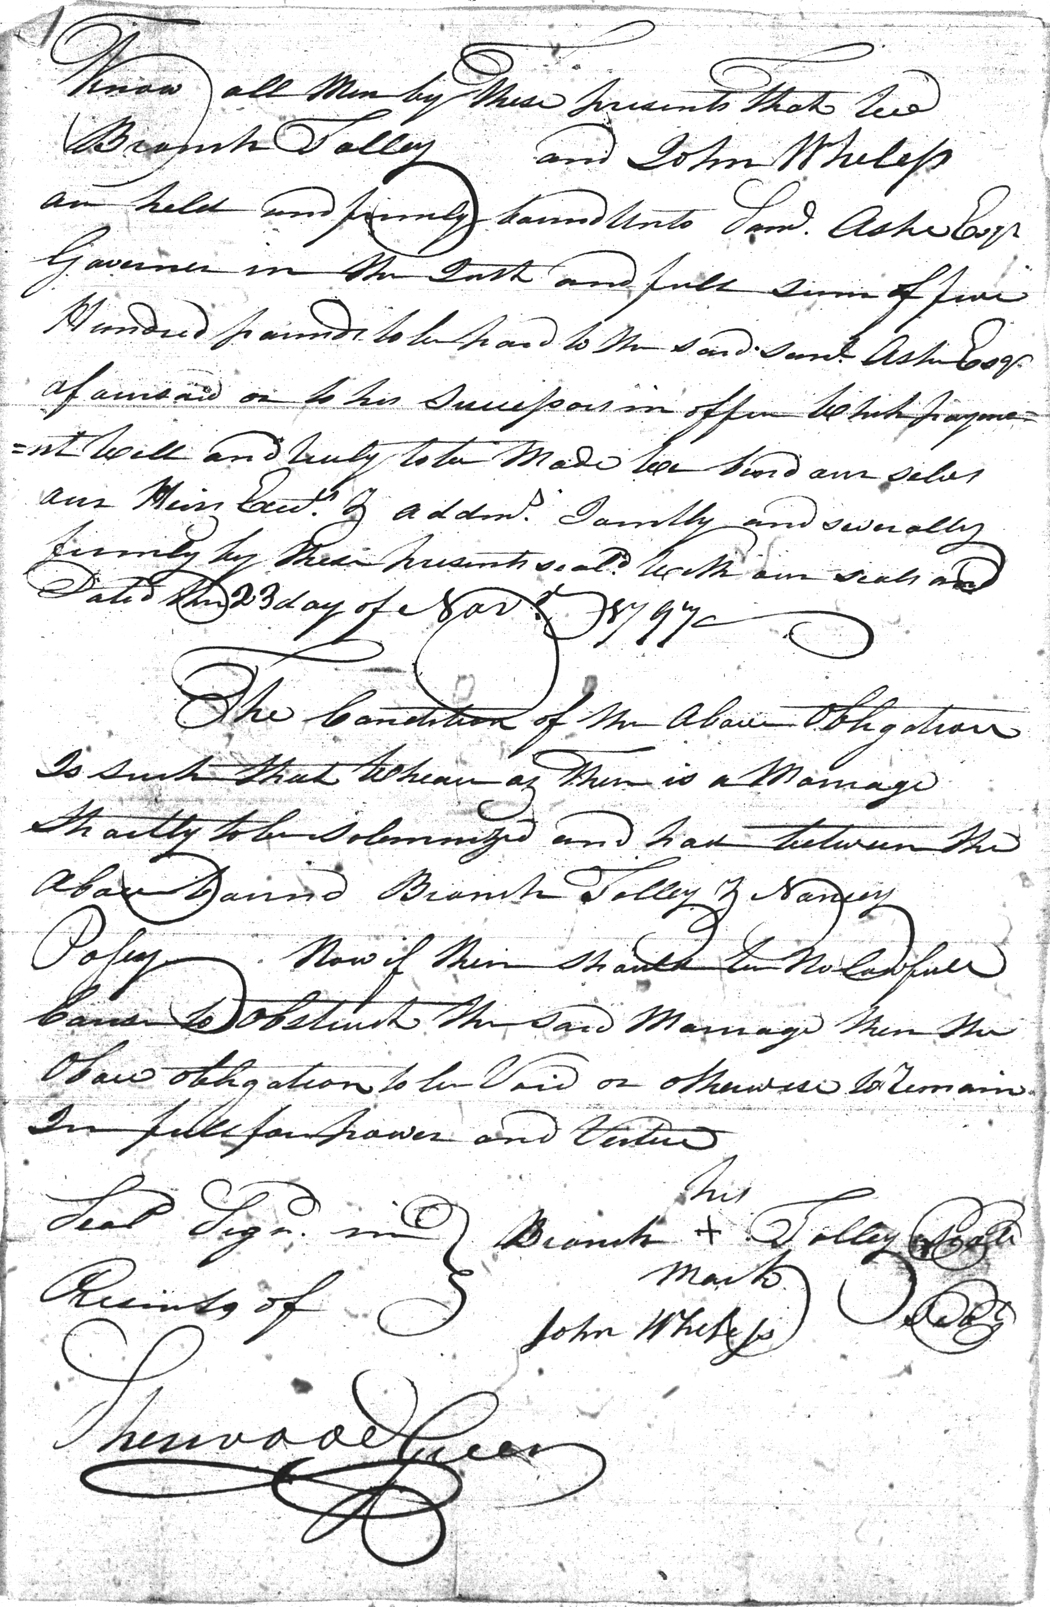 Know all Men by These presents That We
Branch Tolley and John Wheless
are held and firmly bound Unto Saml. Ashe Esqr
Governer in the Just and full sum of five
Hundred pounds to be paid to the said Saml. Ashe Esqr.
afouresaid or to his Successors in office Which payme=
=nt Well and truly to be Made We bind our selves
our Heirs Exrs. & addmrs. Jointly and severally
firmly by these presents seald. With our seals and
Dated this 23 day of Novr. 1797
The Condition of the Above Obligation
Is such that Wheareas Their is a Marriage
Shortly to be Solemnized and had between the
Above bound Branch Tolley & Nancey
Posey. Now if their should be No lawfull
Cause to Obstruct the said Marriage then the
Above obligation to be Void or otherwise to Remain
In full for power and Vertue
Seal Sign. in
Presints of
his
Branch + Tolley Seal
Mark
John Wheless Seal
Sherwood Green